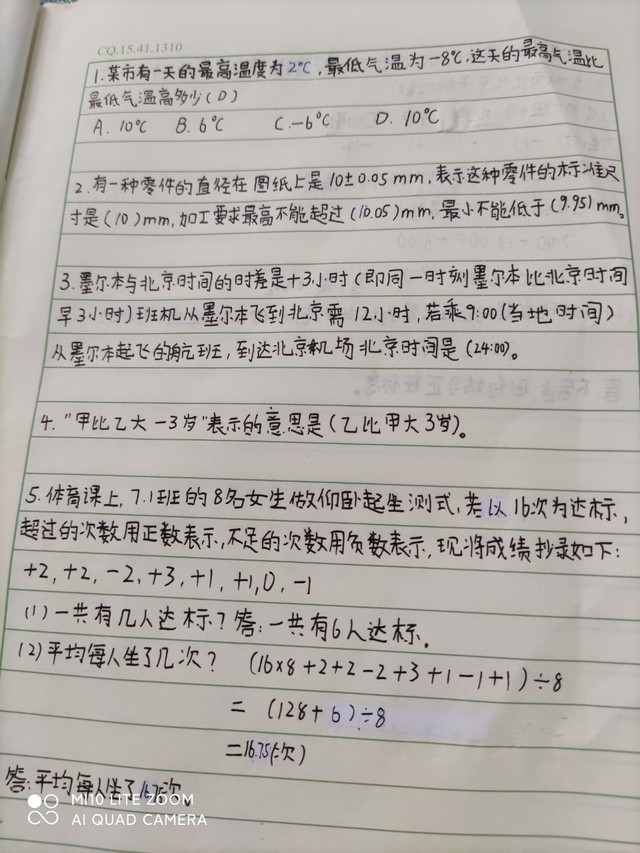 CQ.15.41.1310
1.某市有一天的最高温度为2℃,最低气温为-8℃,这天的最高气温比
最低气温高多少(D)
A. 10℃ B. 6℃ C. -6℃ D. 10℃
2.有一种零件的直径在图纸上是10±0.05mm,表示这种零件的标准尺
寸是(10)mm,加工要求最高不能超过(10.05)mm,最小不能低于(9.95)mm。
3.墨尔本与北京时间的时差是+3小时(即同一时刻墨尔本比北京时间
早3小时)班机从墨尔本飞到北京需12小时,若乘9:00(当地时间)
从墨尔本起飞的航班,到达北京机场北京时间是(24:00)。
4."甲比乙大-3岁"表示的意思是(乙比甲大3岁)。
5.体育课上,7.1班的8名女生做仰卧起坐测试,若以16次为达标,
超过的次数用正数表示,不足的次数用负数表示,现将成绩抄录如下:
+2,+2,-2,+3,+1,+1,0,-1
(1)一共有几人达标?答:一共有6人达标。
(2)平均每人坐了几次? (16×8+2+2-2+3+1-1+1)÷8
=(128+6)÷8
=16.75(次)
答:平均每人坐了16.75次
MI 10 LITE ZOOM
AI QUAD CAMERA